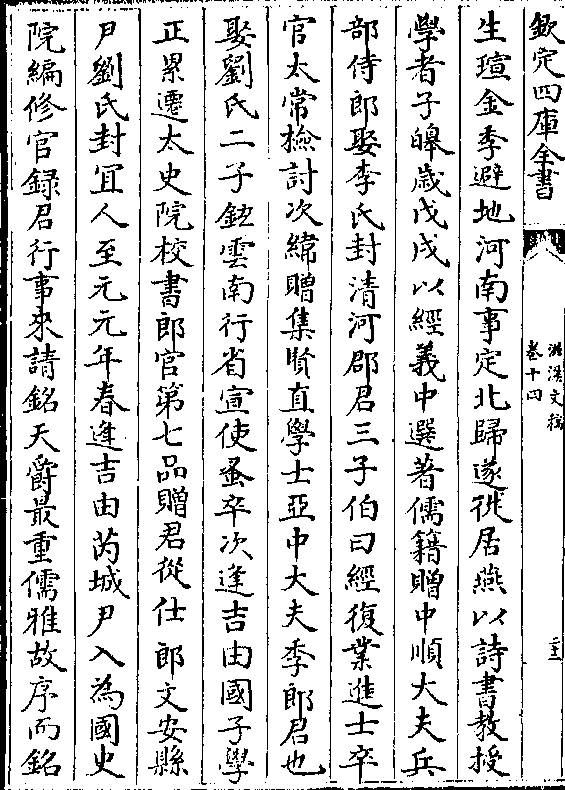 欽定四庫全書
滋溪文稿
卷十四
生瑄金季避地河南事定北歸遂徙居燕以詩書教授
學者子皞歲戊戌以經義中選著儒籍贈中順大夫兵
部侍郎娶李氏封清河郡君三子伯曰經復業進士卒
官太常檢討次緯贈集賢直學士亞中大夫季郎君也
娶劉氏二子釴雲南行省宣使蚤卒次逢吉由國子學
正累遷太史院校書郎官第七品贈君從仕郎文安縣
尹劉氏封宜人至元元年春逢吉由芮城尹入為國史
院編修官録君行事來請銘天爵最重儒雅故序而銘